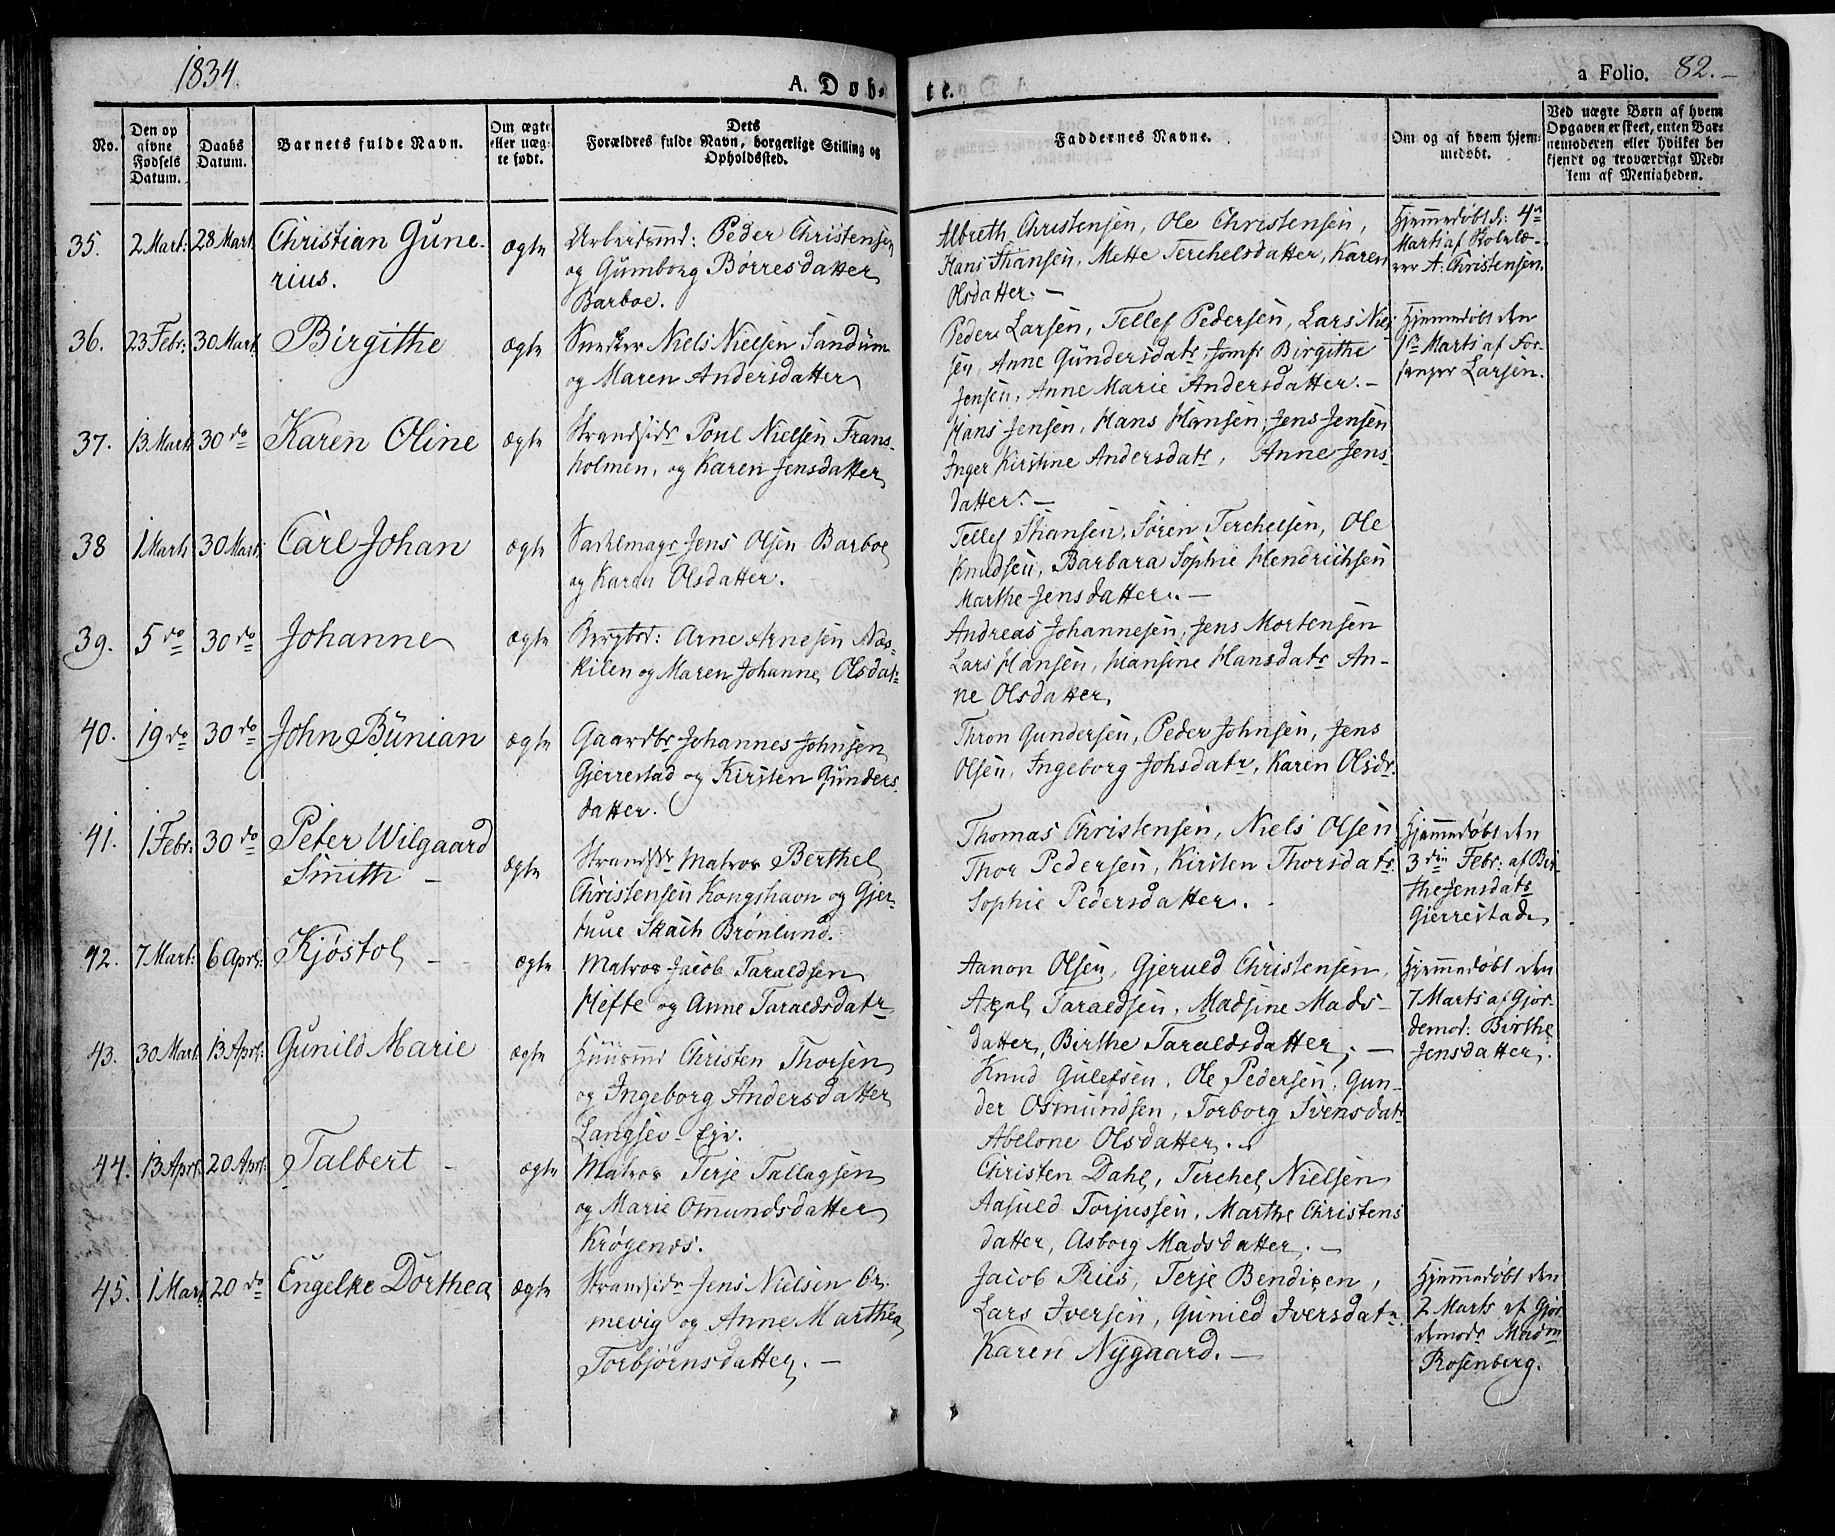 1834.
A. Døb-
te.
a Folio. 82.
No.
Den op
givne
Fødsels
Datum.
Daabs
Datum.
Barnets fulde Navn.
Om ægte
eller uæg-
te født.
Dets
Forældres fulde Navn, borgerlige Stilling og
Opholdssted.
Faddernes Navne.
Om og af hvem hjem-
medøbt.
Ved uægte Børn af hvem
Opgaven er skeet, enten Bar-
nemoderen eller hvilket be-
kjendt og troværdigt Med-
lem af Menigheden.
35. 2 Mart: 28 Mart. Christian Gune-
rius.
ægte
Arbeidsmd: Peder Christensen
og Gumborg Børresdatter
Barboe.
Albreth Christensen, Ole Christensen,
Hans Hansen, Mette Terchelsdatter, Karen
Olsdatter. -
Hjemmedøbt d: 4de
Marts af Skolelæ-
rer A: Christensen.
36. 23 Febr: 30 Mart. Birgithe
ægte
Snedker Niels Nielsen Sandum
og Maren Andersdatter
Peder Larsen, Tellef Pedersen, Lars Niel-
sen, Anne Gundersdatr, Jomfr Birgithe
Jensen, Anne Marie Andersdatter. -
Hjemmedøbt den
1ste Marts af For-
sanger Larsen.
37. 13 Mart. 30 do Karen Oline
ægte
Strandsidr Poul Nielsen Frans-
holmen, og Karen Jensdatter
Hans Jensen, Hans Hansen, Jens Jensen
Inger Kirstine Andersdatr, Anne Jens-
datter. -
38 1 Marts 30 Mart: Carl Johan
ægte
Sadelmagr Jens Olsen Barboe
og Karen Olsdatter.
Tellef Stiansen, Søren Terchelsen, Ole
Knudsen, Barbara Sophie Hendrichsen
Marthe Jensdatter. -
39. 5 do 30 do Johanne
ægte
Bergbor: Arne Arnesen Næs-
kilen og Maren Johanne Olsdatr
Andreas Johannesen, Jens Mortensen
Lars Hansen, Hansine Hansdatr An-
ne Olsdatter.
40. 19 do 30 do John Bunian
ægte
Gaardbr Johannes Johnsen
Gjerrestad og Kirsten Gunders-
datter.
Thron Gundersen, Peder Johnsen, Jens
Olsen, Ingeborg Johsdatr, Karen Olsdr.
41. 1 Febr: 30 do Peter Wilgaard
Smith -
ægte
Strandsdr Matros Berthel
Christensen Kongshavn og Gjer-
true Skach Brønlund.
Thomas Christensen, Niels Olsen
Thor Pedersen, Kirsten Thorsdatr.
Sophie Pedersdatter.
Hjemmedøbt den
3die Febr: af Bir-
the Jensdatr
Gjerrestad
42. 7 Mart: 6 Apr: Kjøstol -
ægte
Matros Jacob Taraldsen
Hefte og Anne Taraldsdatr
Aanon Olsen, Gjeruld Christensen,
Axel Taraldsen, Madsine Mads-
datter, Birthe Taraldsdatter. -
Hjemmedøbt den
7 Marts af Gjor-
demod: Birthe
Jensdatter.
43. 30 Mart. 13 Apr: Gunild Marie
ægte
Huusmd Christen Thorsen
og Ingeborg Andersdatter
Langsev-Eje.
Knud Gulefsen, Ole Pedersen, Gun-
der Osmundsen, Torborg Svensdatr
Abelone Olsdatter.
44. 13 Apr: 20 Apr: Talbert -
ægte
Matros Terje Tallagsen
og Marie Omundsdatter
Krøgenes.
Christen Dahl, Terchel Nielsen
Aasuld Torjussen, Marthe Christens
datter, Asborg Madsdatter. -
45. 1 Mart. 20 do Engelke Dorthea
ægte
Strandsidr Jens Nielsen Gr.
mevig og Anne Marthea
Torbjørnsdatter. -
Jacob Riis, Terje Bendixen,
Lars Iversen, Gunild Iversdatr.
Karen Nygaard. -
Hjemmedøbt den
2 Marts af Gjor
demodr Madm
Rosenberg.